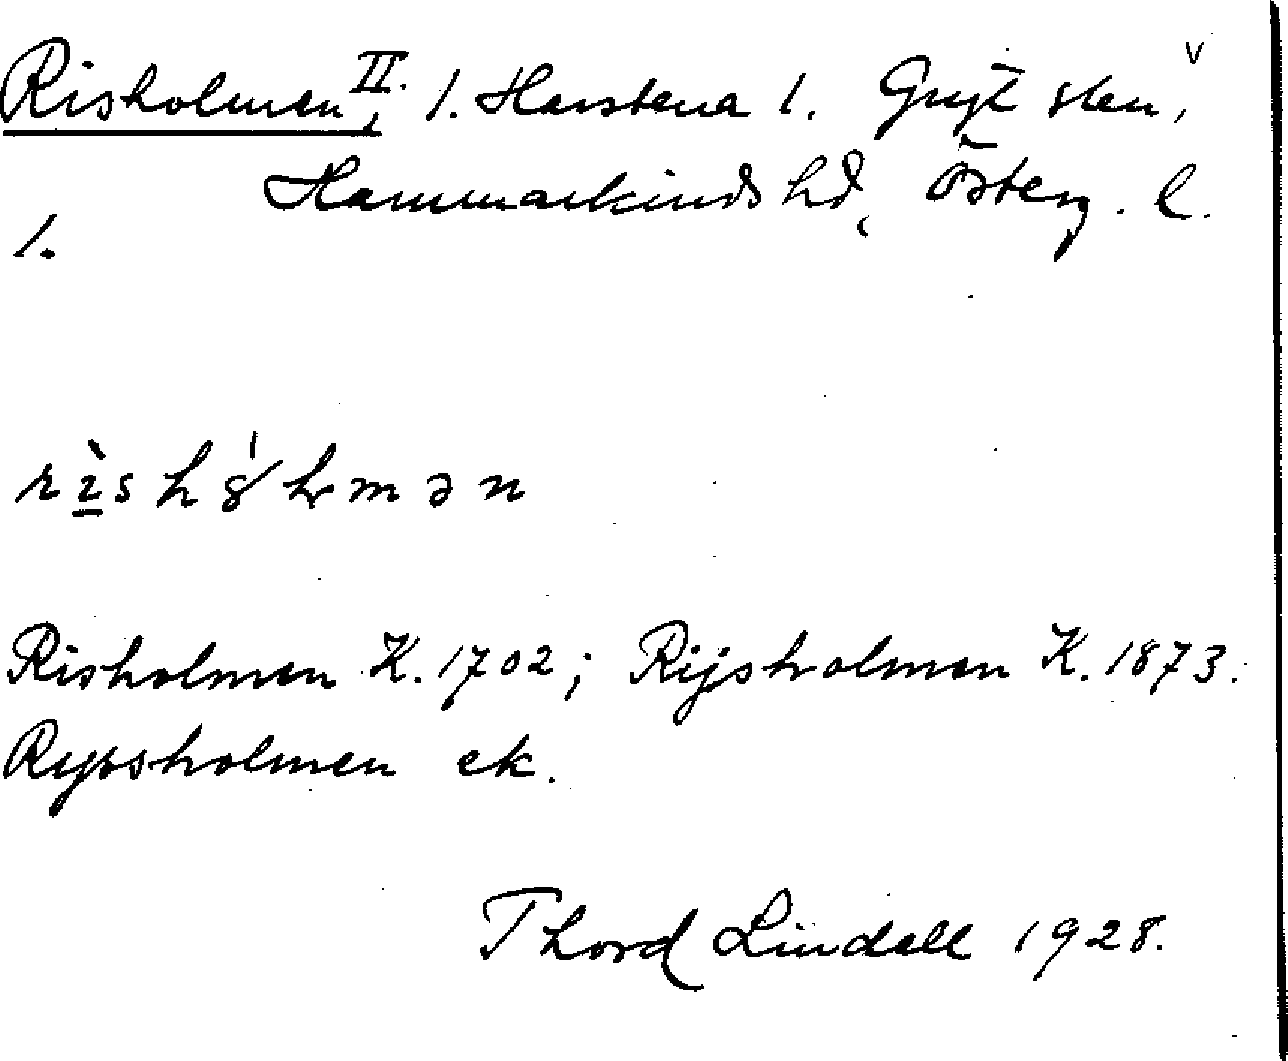 Risholmen II. 1. Harstena 1. Gryt skn, v
Hammarkinds hd, Österg. l.
1.
rìshól​mən
Risholmen K. 1702; Rijsholmen K. 1873.
Rysholmen ek.
Thord Lindell 1928.